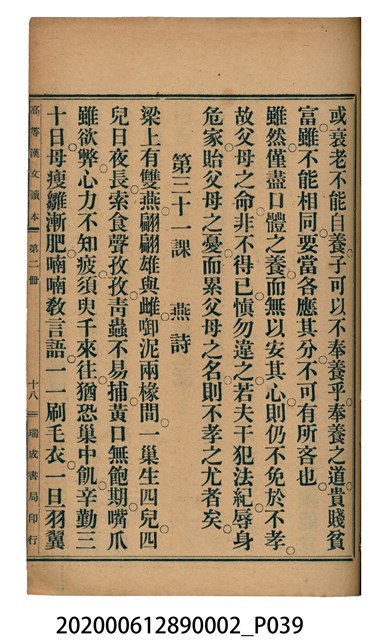 或衰老不能自養子可以不奉養乎奉養之道貴賤貧
富雖不能相同要當各應其分不可有所吝也
雖然僅盡口體之養而無以安其心則仍不免於不孝
故父母之命非不得已愼勿違之若夫干犯法紀辱身
危家貽父母之憂而累父母之名則不孝之尤者矣
第三十一課 燕詩
梁上有雙燕翩翩雄與雌啣泥兩椽間一巢生四兒四
兒日夜長索食聲孜孜靑蟲不易捕黃口無飽期嘴爪
雖欲弊心力不知疲須臾千來往猶恐巢中飢辛勤三
十日母瘦雛漸肥喃喃敎言語一一刷毛衣一旦羽翼
高等漢文讀本 第二冊 十八 瑞成書局印行
202000612890002_P039